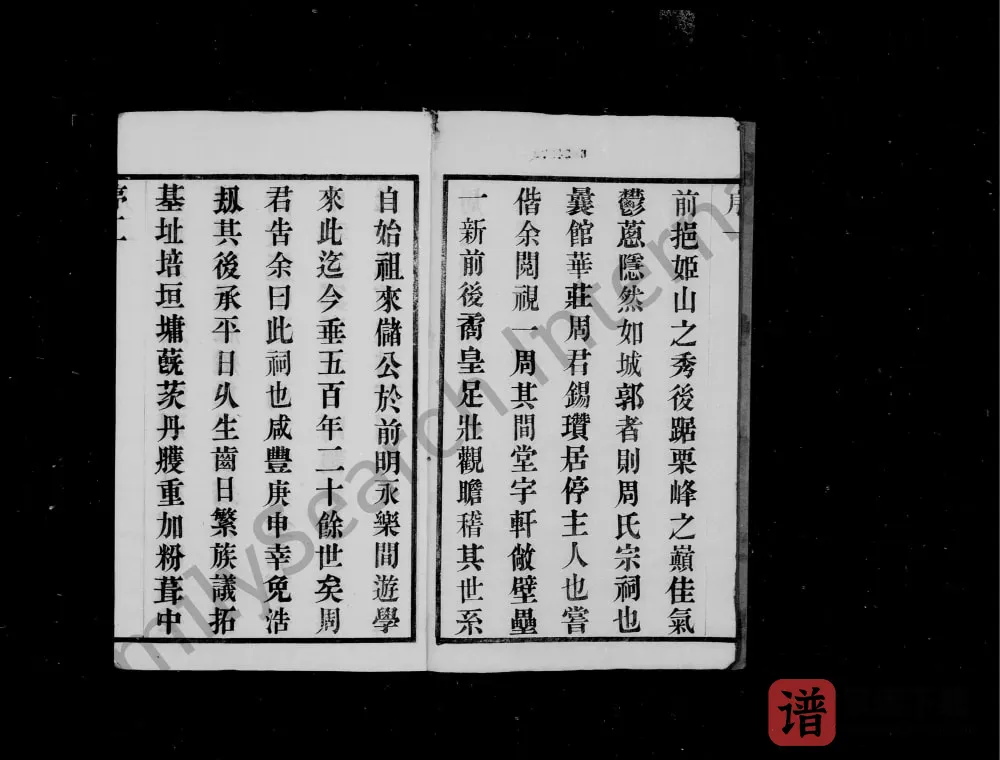 序
前挹姬山之秀後踞栗峰之巔佳氣
鬱蔥隱然如城郭者則周氏宗祠也
曩館華莊周君錫瓚居停主人也嘗
偕余閱視一周其間堂宇軒敞壁壘
一新前後矞皇足壯觀瞻稽其世系
自始祖來儲公於前明永樂間遊學
來此迄今垂五百年二十餘世矣周
君告余曰此祠也咸豐庚申幸免浩
刼其後承平日久生齒日繁族議拓
基址培垣墉蓻茨丹雘重加粉葺中
序二
milysearch Intern
谱